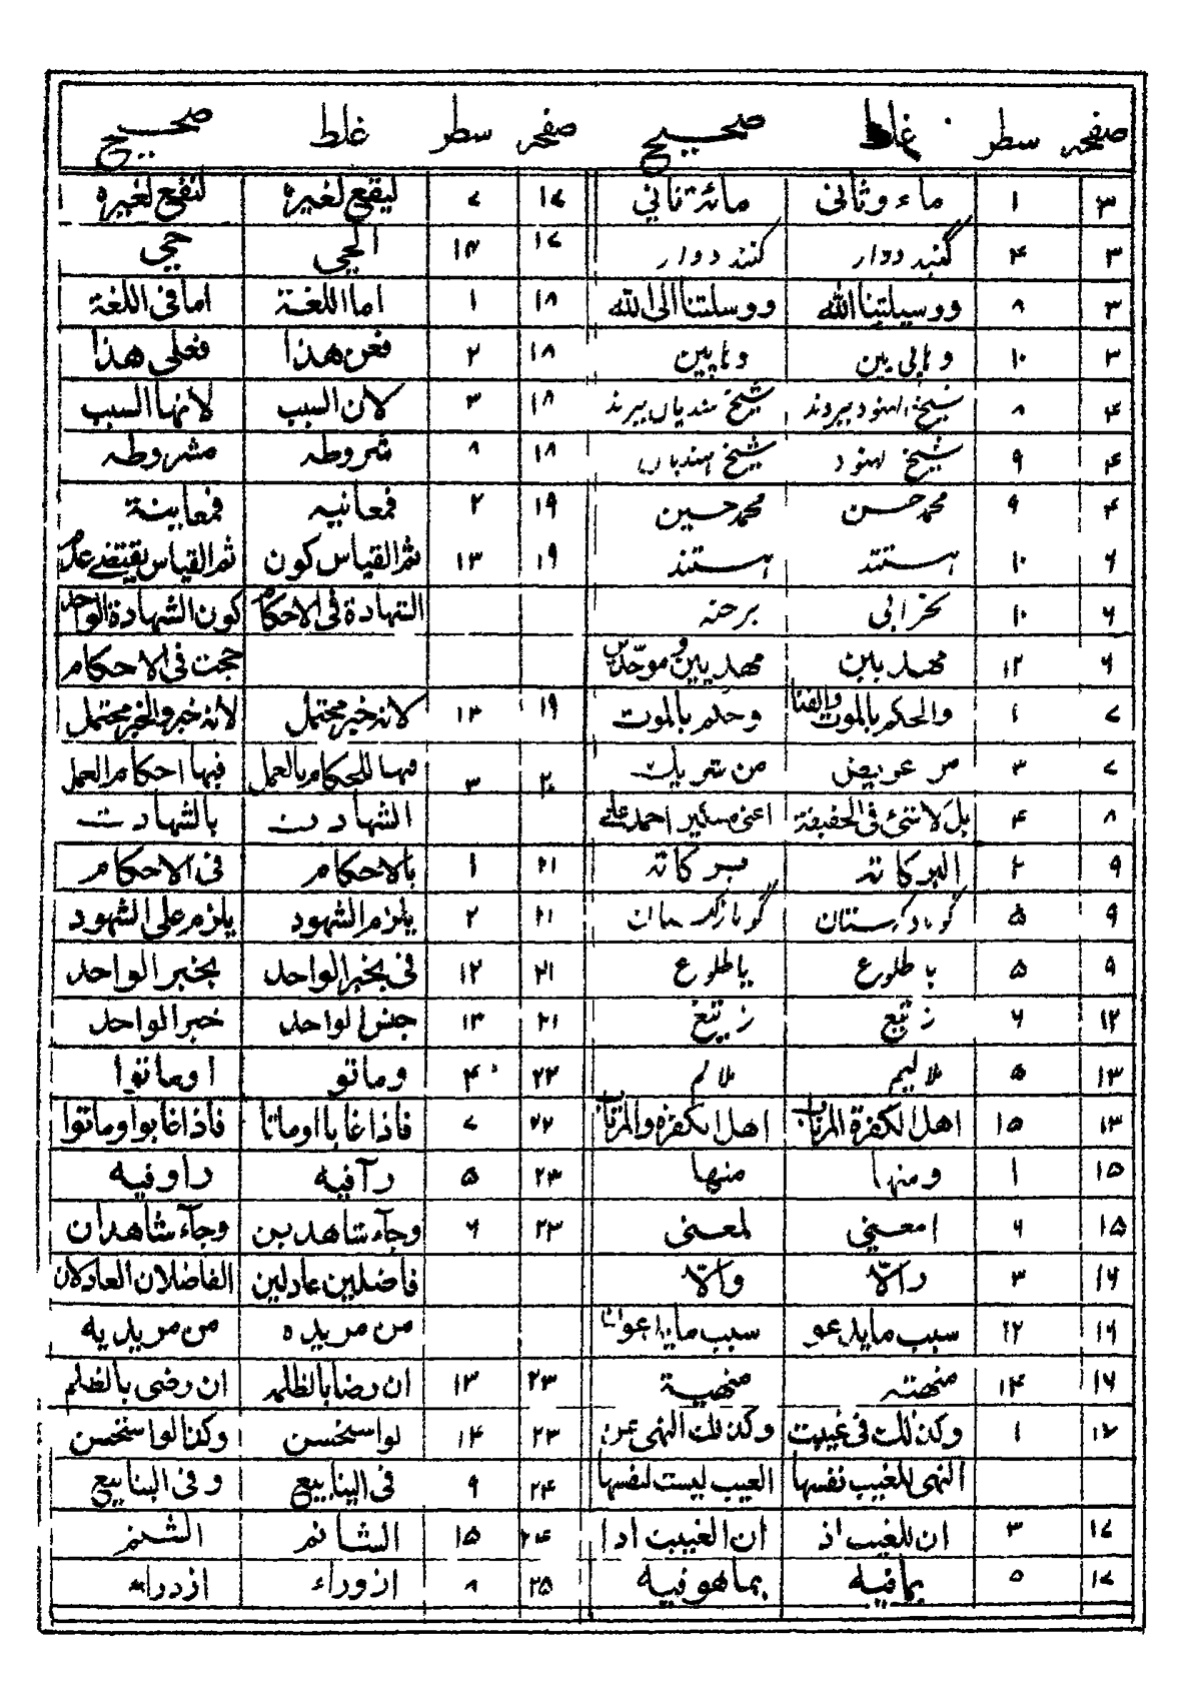 صفحہ سطر غلط صحیح صفحہ سطر غلط صحیح
۳ ۱ ماء وثانی مائۃ ثاني ۱۷ ۷ لیقع لغیرہ لنفع لغیرہ
۳ ۴ گنبد دوار کنند دوار ۱۷ ۱۴ الحجی حجي
۳ ۸ ووسیلتنا الله ووسلتنا الی الله ۱۸ ۱ اما اللغۃ اما فی اللغۃ
۳ ۱۰ وہابی بین وہابین ۱۸ ۲ فعن هذا فعلی هذا
۴ ۸ شیخ الهنود ببردند شیخ هندیاں ببرند ۱۸ ۳ لان السبب لانها السبب
۴ ۹ شیخ لهنود شیخ هندیاں ۱۸ ۸ شروطہ مشروطہ
۴ ۹ محمد حسن محمد حسین ۱۹ ۲ فمعانیہ فمعاینۃ
۶ ۱۰ ہستند ہستند ۱۹ ۱۳ ثم القیاس کون ثم القیاس یقتضے
۶ ۱۰ برحتہ الشهادۃ فی الاحکام کون الشهادۃ الواحد
۶ ۱۲ مهدیین مهدیین وموحدین حجت فی الاحکام
۷ ۱ والحکم بالموت والفنا وحکم بالموت ۱۹ ۱۳ لانہ خبر محتمل لانہ خبر والخبر محتمل
۷ ۳ من شریک ۲۰ ۳ فیها للحکام بالعمل فیها احکام العمل
۸ ۴ بل لا شئ فی الحقیقۃ الشهادت بالشهادت
۹ ۲ البرکاتہ ببرکاتہ ۲۱ ۱ بالاحکام فی الاحکام
۹ ۵ ۲۱ ۲ یلزم الشهود یلزم علی الشهود
۹ ۵ با طلوع یا طلوع ۲۱ ۱۲ فی بخبر الواحد بخبر الواحد
۱۲ ۶ ز تیع ز تیغ ۲۱ ۱۳ جنس الواحد خبر الواحد
۱۳ ۵ ملالیم ملالم ۲۲ ۴ وماتو اوماتوا
۱۳ ۱۵ اهل الکفرۃ اهل الکفرۃ ۲۲ ۷ فاذا غابا اوماتا فاذا غابوا وماتوا
۱۵ ۱ ومنها منها ۲۳ ۵ رآفیہ راوفیہ
۱۵ ۶ امعنی لمعنی ۲۳ ۶ وجآء شاهدین وجآء شاهدان
۱۶ ۳ رالّا والّا فاضلین عادلین الفاضلان العادلان
۱۶ ۱۲ سبب ما یدعو سبب ما یدعوا من مریدہ من مریدیہ
۱۶ ۱۴ منهتہ منهیۃ ۲۳ ۱۳ ان رضا بالظلم ان رضی بالظلم
۱۷ ۱ وکذلک فی غیبت وکذلک النهی عن ۲۳ ۱۴ لواستحسن وکذا لواستحسن
النهی للغیب نفسها الغیب لیست لنفسها ۲۴ ۹ فی الینابیع وفی الینابیع
۱۷ ۳ ان للغیب اذ ان الغیبت اذا ۲۴ ۱۵ الشاتم الشتم
۱۷ ۵ بمافیہ بماهوفیہ ۲۵ ۸ ازوراء ازدراء